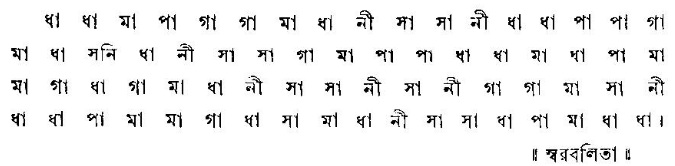 ধা ধা মা পা গা গা মা ধা নী সা সা নী ধা ধা পা পা গা
মা ধা সনি ধা নী সা সা গা মা পা পা ধা ধা মা ধা পা মা
মা গা ধা গা মা ধা নী সা সা নী সা নী গা গা মা সা নী
ধা ধা পা মা মা গা ধা সা মা ধা নী সা সা ধা পা মা ধা ধা।
॥ স্বরবলিতা ॥